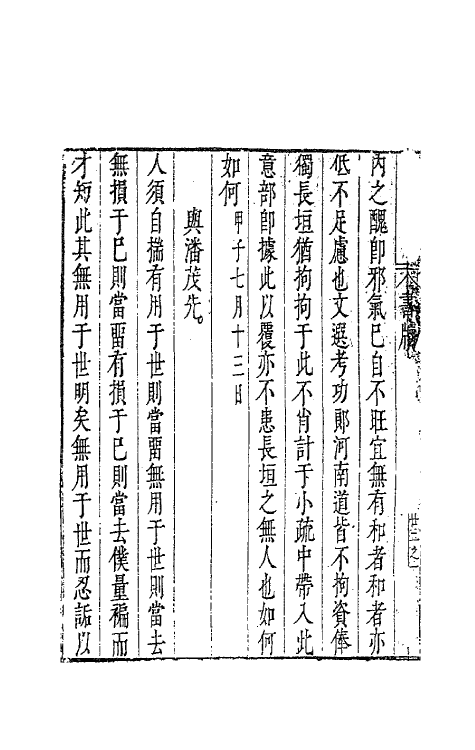 內之醜卽邪氣已自不旺宜無有和者和者亦
低不足慮也文選考功郞河南道皆不拘資俸
獨長垣猶拘拘于此不肖計于小疏中帶入此
意部卽據此以覆亦不患長垣之無人也如何
如何甲子七月十三日
與潘茂先。
人須自揣有用于世則當畱無用于世則當去
無損于已則當畱有損于已則當去僕量褊而
才短此其無用于世明矣無用于世而忍詬以